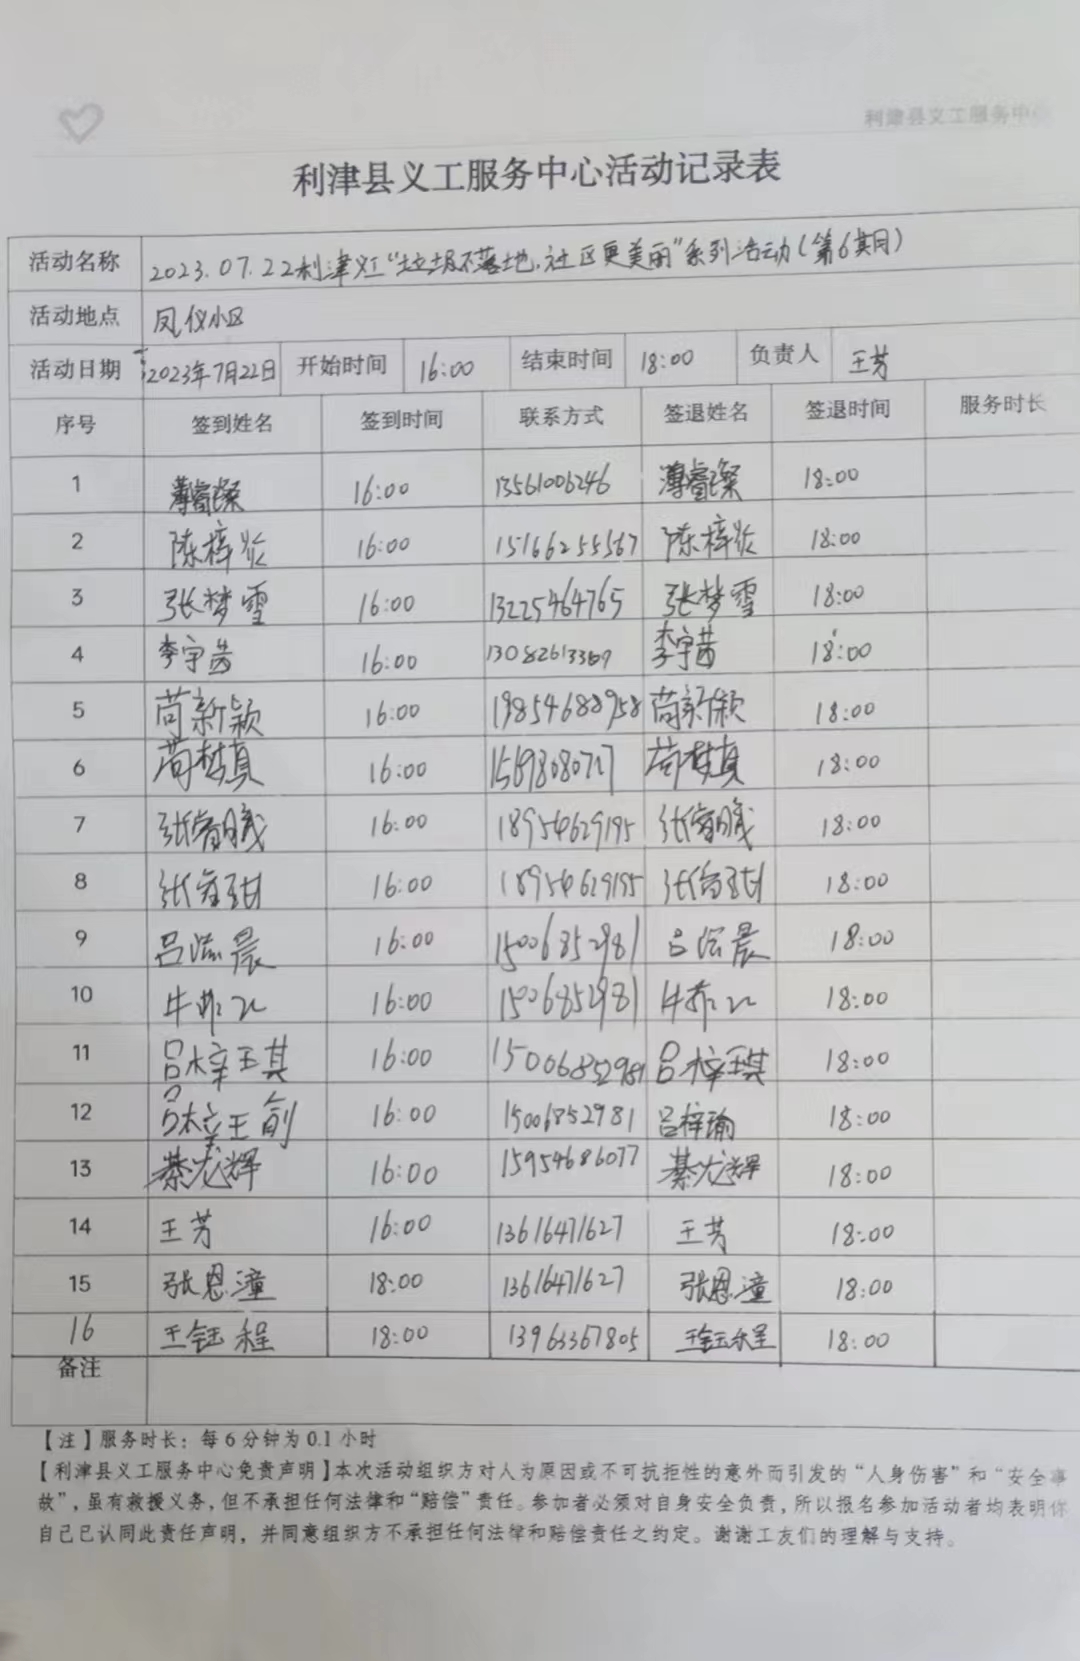 利津县义工服务中心
利津县义工服务中心活动记录表
活动名称 2023.07.22利津义工“垃圾不落地,社区更美丽”系列活动(第6期)
活动地点 凤仪小区
活动日期 2023年7月22日 开始时间 16:00 结束时间 18:00 负责人 王芳
序号 签到姓名 签到时间 联系方式 签退姓名 签退时间 服务时长
1 薄睿璨 16:00 13561006246 薄睿璨 18:00
2 陈梓炎 16:00 15166255567 陈梓炎 18:00
3 张梦雪 16:00 13225464765 张梦雪 18:00
4 李宇茜 16:00 李宇茜 18:00
5 苟新颖 16:00 19854688958 苟新颖 18:00
6 16:00 18:00
7 16:00 18954629195 18:00
8 16:00 18954629195 18:00
9 吕 晨 16:00 15006852981 吕 晨 18:00
10 牛 16:00 15006852981 牛 18:00
11 吕梓琪 16:00 15006852981 吕梓琪 18:00
12 吕梓瑜 16:00 15006852981 吕梓瑜 18:00
13 綦龙辉 16:00 15954686077 綦龙辉 18:00
14 王芳 16:00 13616471627 王芳 18:00
15 张恩潼 18:00 13616471627 张恩潼 18:00
16 王钰程 18:00 13963367805 王钰程 18:00
备注
【注】服务时长：每6分钟为0.1小时
【利津县义工服务中心免责声明】本次活动组织方对人为原因或不可抗拒性的意外而引发的“人身伤害”和“安全事
故”，虽有救援义务，但不承担任何法律和“赔偿”责任。参加者必须对自身安全负责，所以报名参加活动者均表明你
自己已认同此责任声明，并同意组织方不承担任何法律和赔偿责任之约定。谢谢工友们的理解与支持。